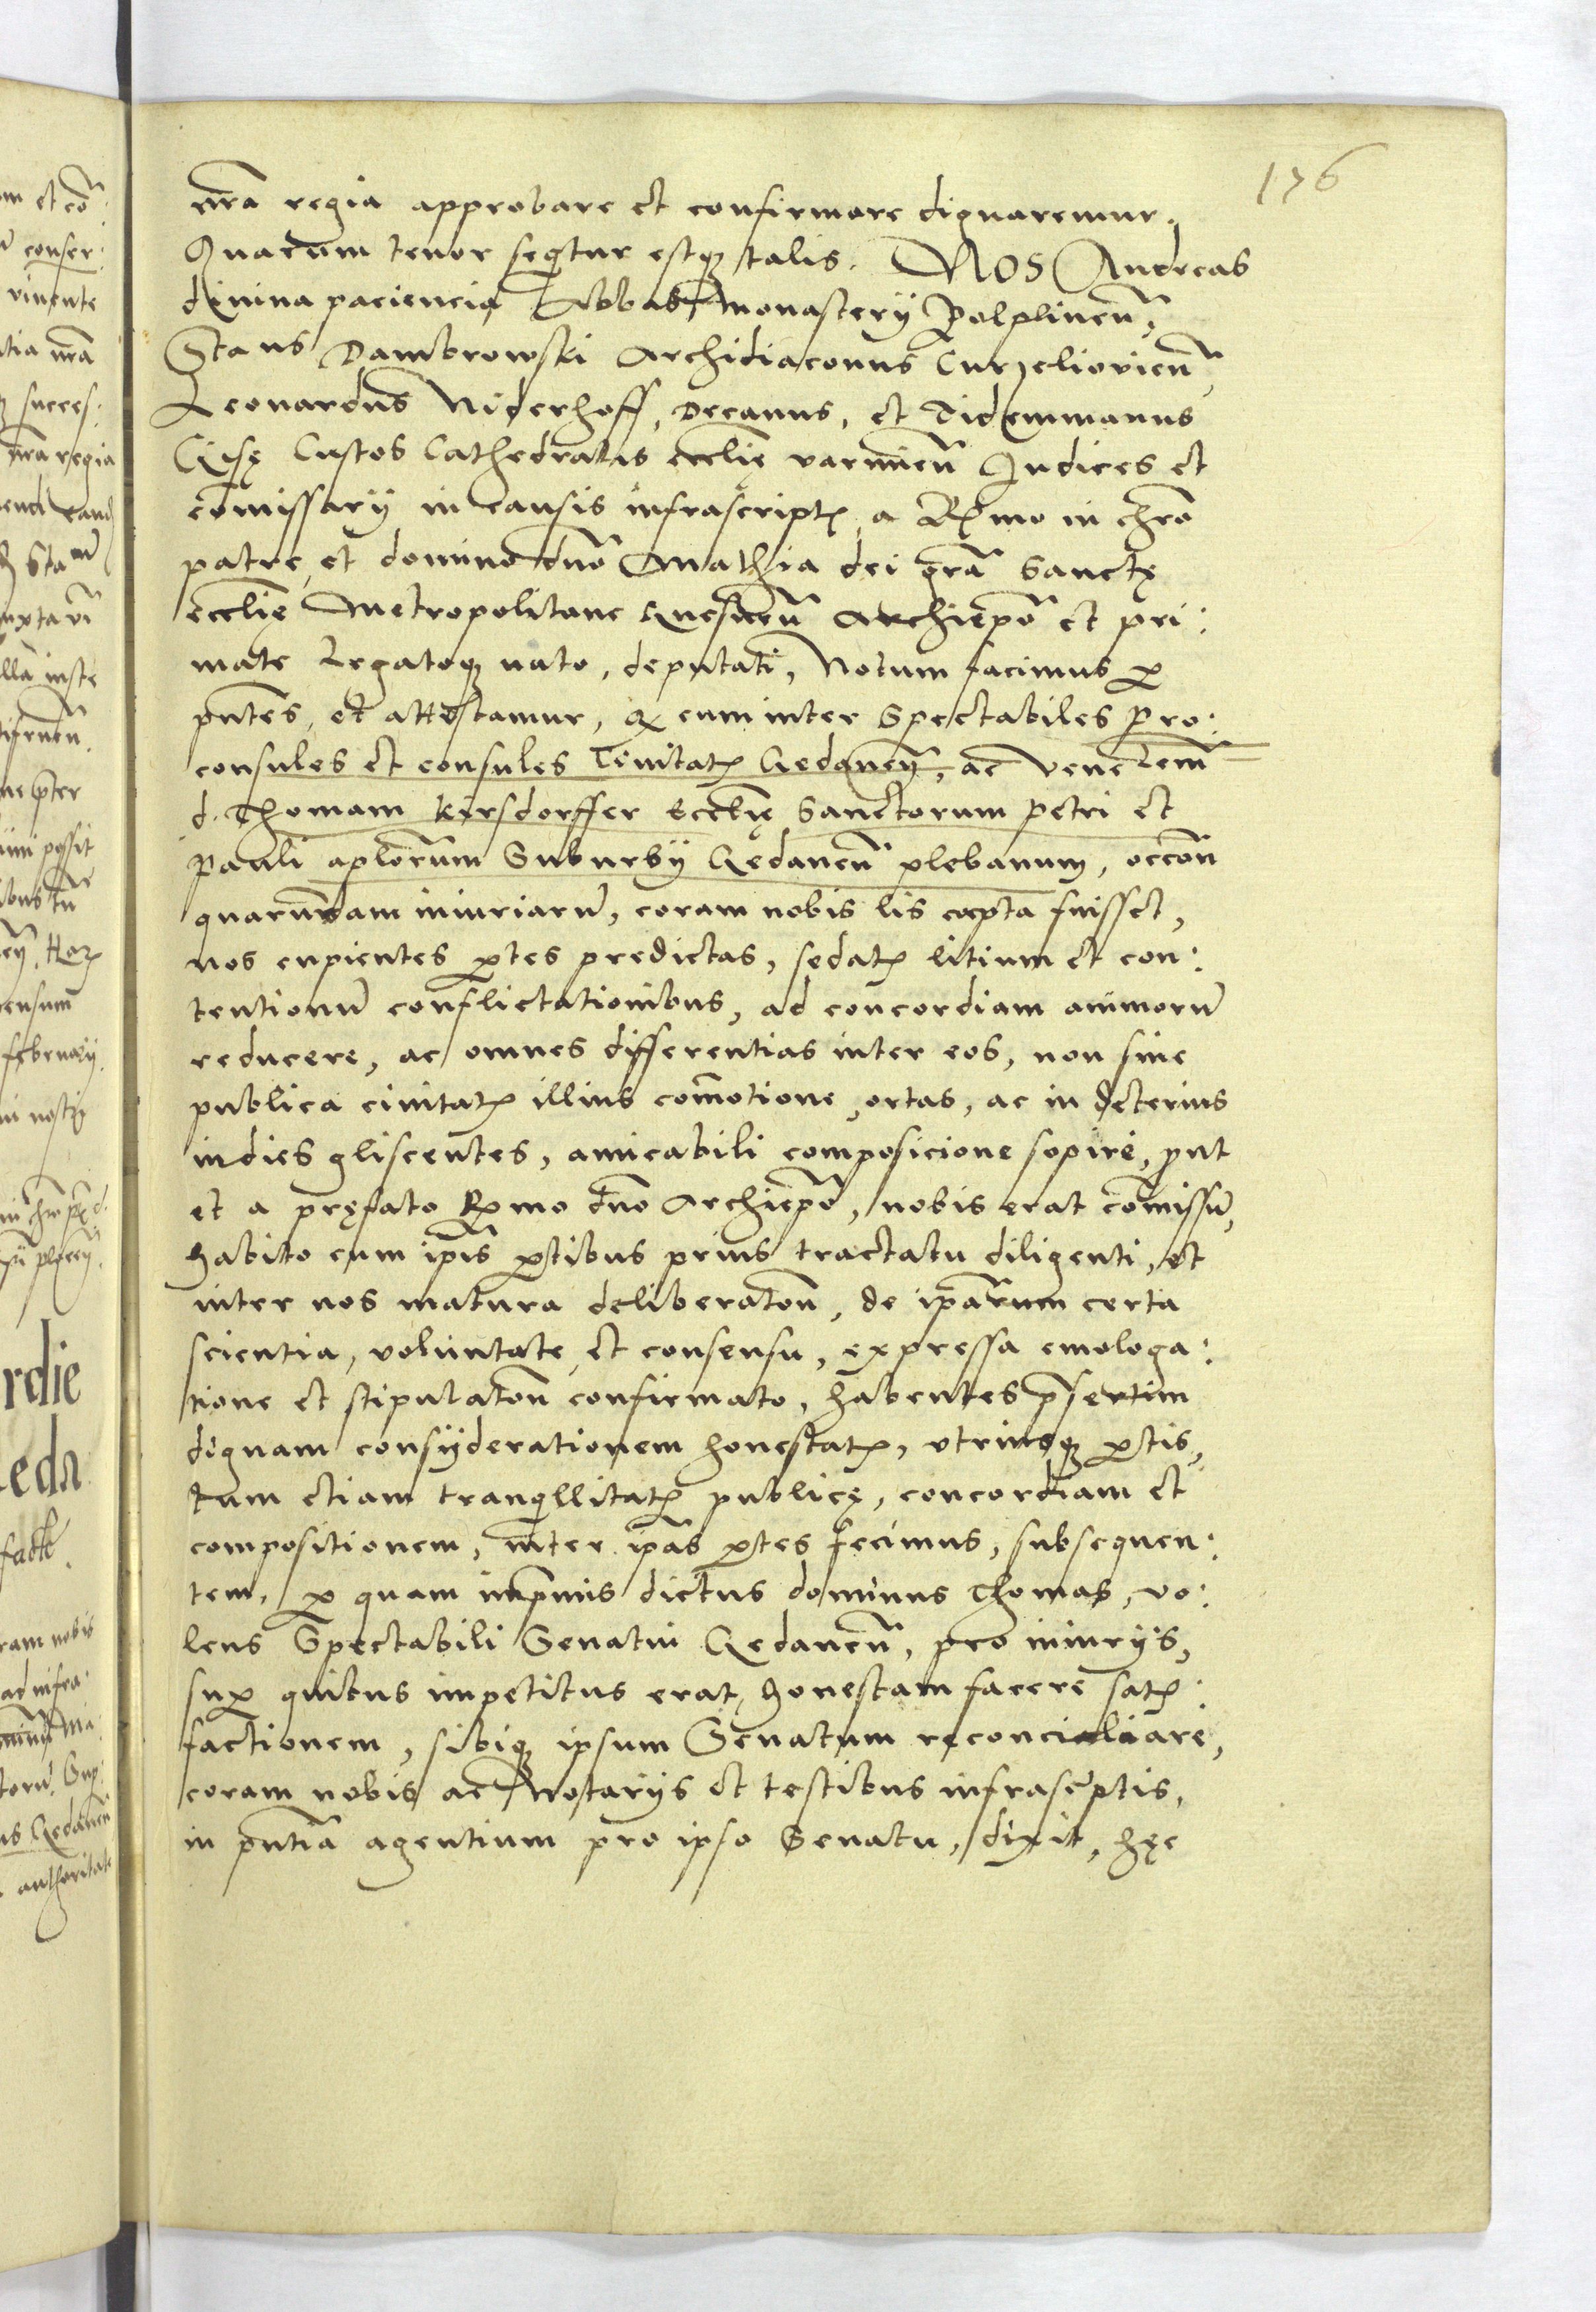 176
nr̃a regia approbare et confirmare dignaremur.
Quarum tenor seq̃tur estq3 talis. NOS Andreas
divina paciencia Abbas Monasterij Polplinen̄,
Sta us Dambrowski Archidiaconus Curzelioviens̄,
Leonardus Niderhoff, Decanus, et Tidemmanus
Gisę Custos Cathedralis ecclię varmien̄ Judices et
cōmissarij in causis infrascript, a Rmo in chrō
patre et domino dno Mathia dei grā Sanctę
ecclię Metropolitane Gnesnen̄ Archiepō et pri:
mate Legatoq3 nato, deputati, Notum facimus p
pn̄tes, et attestamur, q cum inter Spectabiles Pro:
consules et consules Civitat Gedanen̄, ac Venelem̄
d. Thomam Kirsdorffer Ecclię Sanctorum Petri et
Pauli aplorum Suburbij Gedanen̄ plebanum, occōn
quarundam iniuriarū, coram nobis lis cœpta fuisset,
nos cupientes ptes predictas, sedat litium et con:
tentionū conflictationibus, ad concordiam animorū
reducere, ac omnes differentias inter eos, non sine
publica civitat illius com̄otione ortas, ac in deterius
indies gliscentes, amicabili composicione sopire, put
et a pręfato Rmo dn̄o Archiepō, nobis erat cōmissū,
habito cum ip̄is ptibus prius tractatu diligenti, et
inter nos matura deliberatōn, de ip̄arum certa
scientia, voluntate et consensu, expressa emologa:
tione et stipulatōn confirmato, habentes p̄sertim
dignam consyderationem honestat, utriusq3 ptis,
tum etiam tranqllitat publicę, concordiam et
compositionem, inter ip̄as ptes fecimus, subsequen:
tem, p quam inp̄mis dictus dominus Thomas, vo:
lens Spectabili Senatui Gedanen̄, pro iniurijs,
sup quibus impetitus erat, honestam facere sat:
factionem, sibiq3 ipsum Senatum reconciliare,
coram nobis ac Notarijs et testibus infrasc̄ptis,
in pn̄tia agentium pro ipso Senatu, dixit, hęc